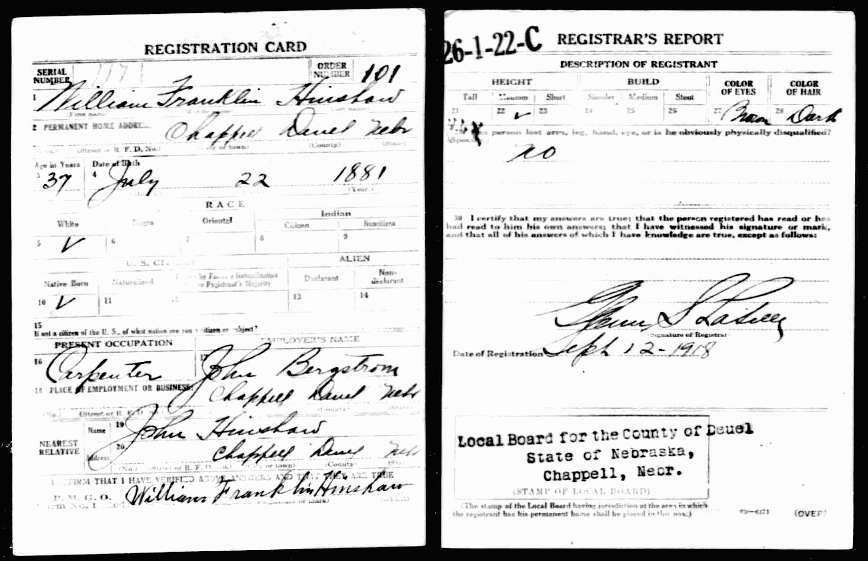 REGISTRATION CARD
SERIAL NUMBER 117
ORDER NUMBER 101
1 William Franklin Hinshaw
2 PERMANENT HOME ADDRESS
Chappell Deuel Nebr
(Street or R. F. D. No.) (City or town) (County) (State)
Age in Years Date of Birth
37 4 July 22 1881
(Year.)
RACE
White Negro Oriental Indian
Citizen Noncitizen
5 ✓ 6 7 8 9
U. S. CITIZEN ALIEN
Native Born Naturalized Citizen by Father's Naturalization or Registrant's Majority Declarant Non-declarant
10 ✓ 11 13 14
15
If not a citizen of the U. S., of what nation are you a citizen or subject?
PRESENT OCCUPATION EMPLOYER'S NAME
16 Carpenter 17 John Bergstrom
18 PLACE OF EMPLOYMENT OR BUSINESS:
Chappell Deuel Nebr
(No.) (Street or R. F. D.) (County) (State)
NEAREST RELATIVE
Name 19 John Hinshaw
Address 20 Chappell Deuel Nebr
(No.) (Street or R. F. D. No.) (City or town) (County) (State)
I AFFIRM THAT I HAVE VERIFIED ABOVE ANSWERS AND THAT THEY ARE TRUE
P. M. G. O.
Form No. 1
William Franklin Hinshaw
26-1-22-C
REGISTRAR'S REPORT
DESCRIPTION OF REGISTRANT
HEIGHT BUILD COLOR OF EYES COLOR OF HAIR
Tall Medium Short Slender Medium Stout
21 22 ✓ 23 24 25 26 27 Brown 28 Dark
29 Has person lost arm, leg, hand, eye, or is he obviously physically disqualified?
(Specify.)
no
30 I certify that my answers are true; that the person registered has read or has
had read to him his own answers; that I have witnessed his signature or mark,
and that all of his answers of which I have knowledge are true, except as follows:
(Signature of Registrar)
Date of Registration Sept 12-1918
Local Board for the County of Deuel
State of Nebraska,
Chappell, Nebr.
(STAMP OF LOCAL BOARD)
(The stamp of the Local Board having jurisdiction of the area in which
the registrant has his permanent home shall be placed in this box.)
(OVER)